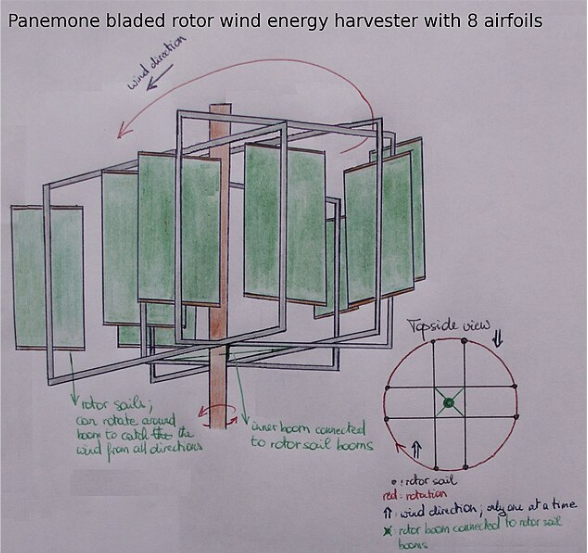 Panemone bladed rotor wind energy harvester with 8 airfoils
wind direction
Topside view
rotor sails;
can rotate around
boom to catch the the
wind from all directions
inner boom connected
to rotor sail booms
: rotor sail
red: rotation
: wind direction; only one at a time
: rotor boom connected to rotor sail
booms